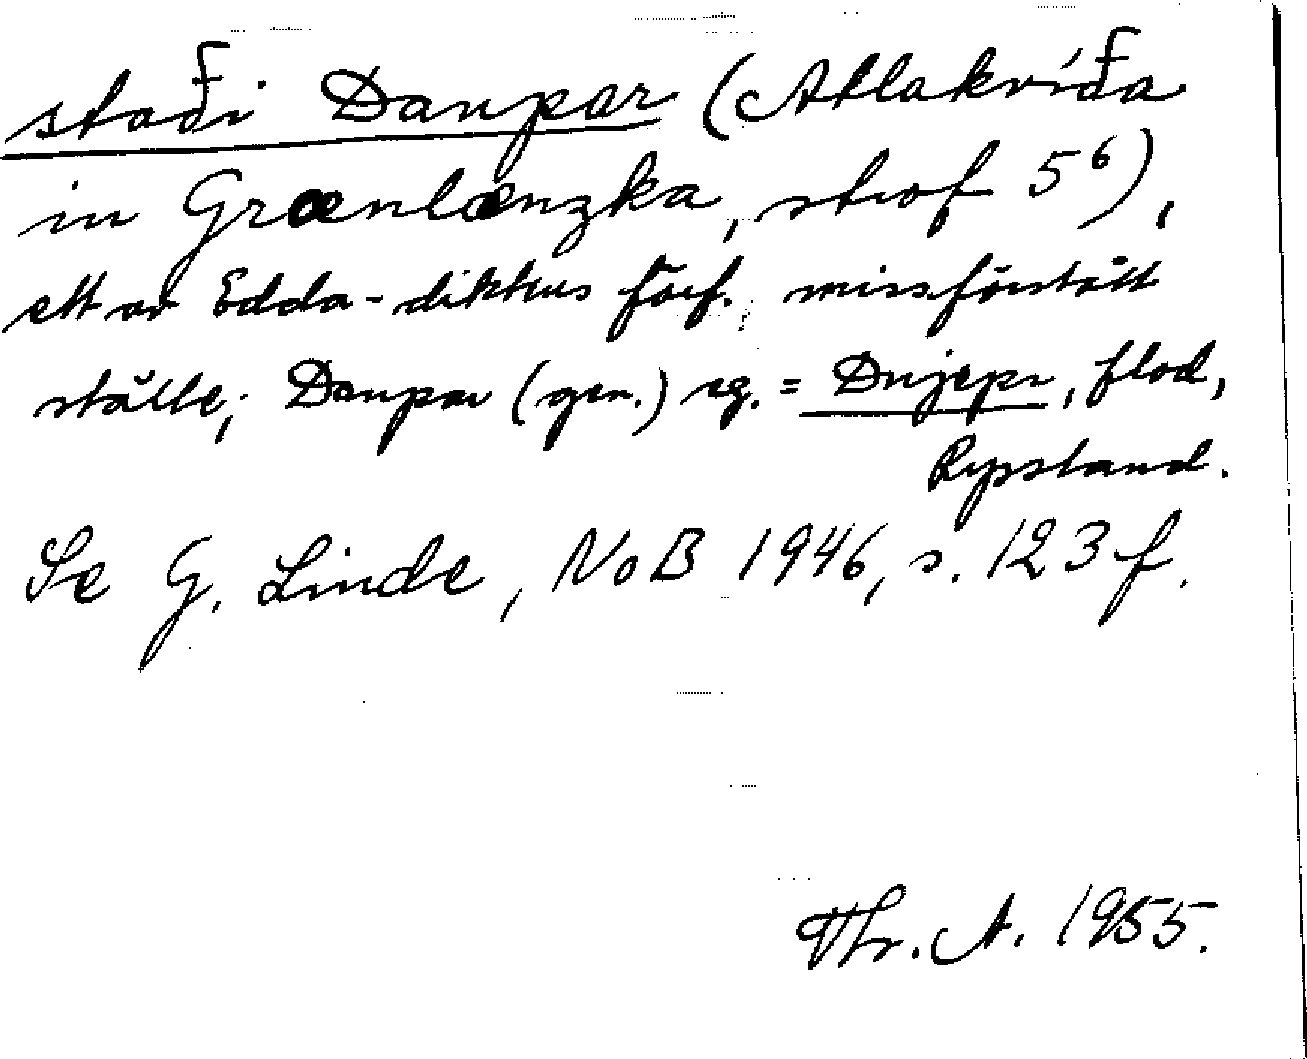 staði Danpar (Atlakviða
in Grœnlænzka, strof 5⁶),
ett av Edda-diktens förf. missförstått
ställe; Danpar (gen.) eg. = Dnjepr, flod,
Ryssland.
Se G. Linde, NoB 1946, s. 123 f.
Thr. A. 1955.